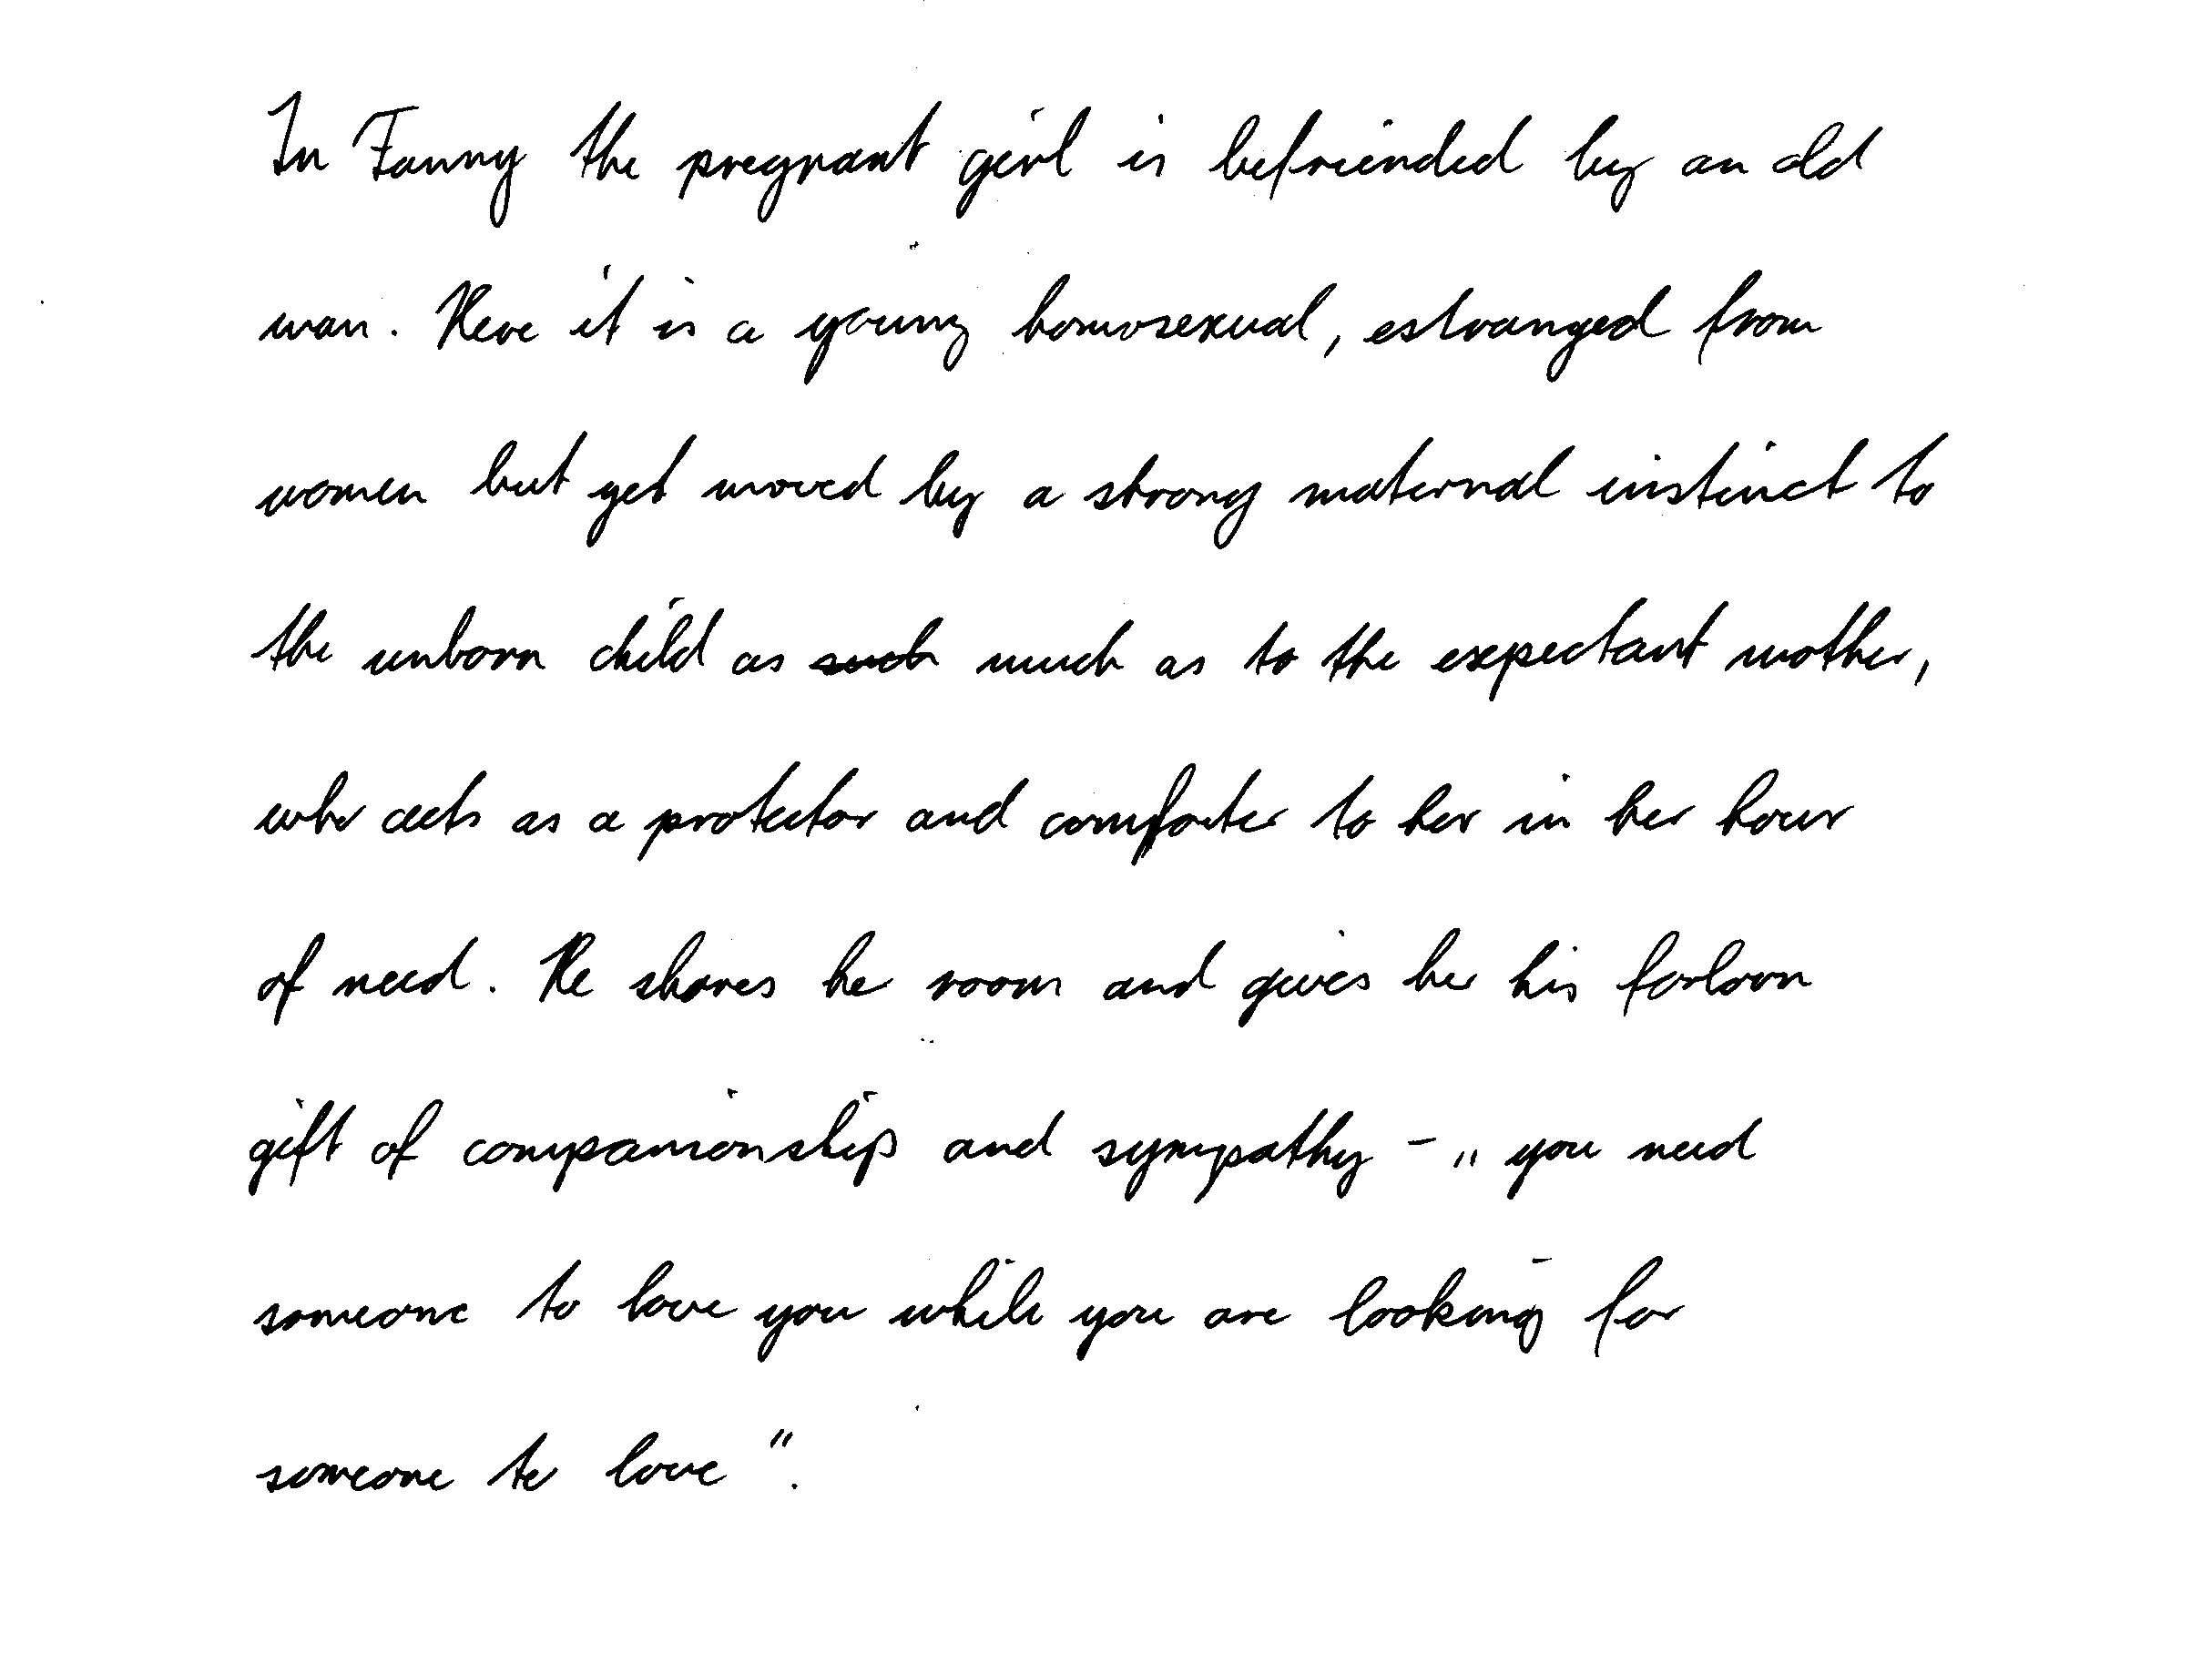 In Fanny the pregnant girl is befriended by an old
man. Here it is a young homosexual, estranged from
women but yet moved by a strong maternal instinct to
the unborn child as such much as to the expectant mother,
who acts as a protector and comforter to her in her hour
of need. He shares he room and gives her his forlorn
gift of companionship and sympathy - „ you need
someone to love you while you are looking for
someone to love ".